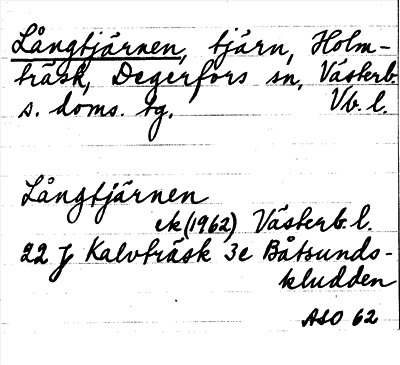 Långtjärnen, tjärn, Holm-
träsk, Degerfors sn, Västerb.
s. doms. tg. Vb. l.
Långtjärnen
ek (1962) Västerb. l.
22 J Kalvträsk 3e Båtsunds-
kludden
ASO 62